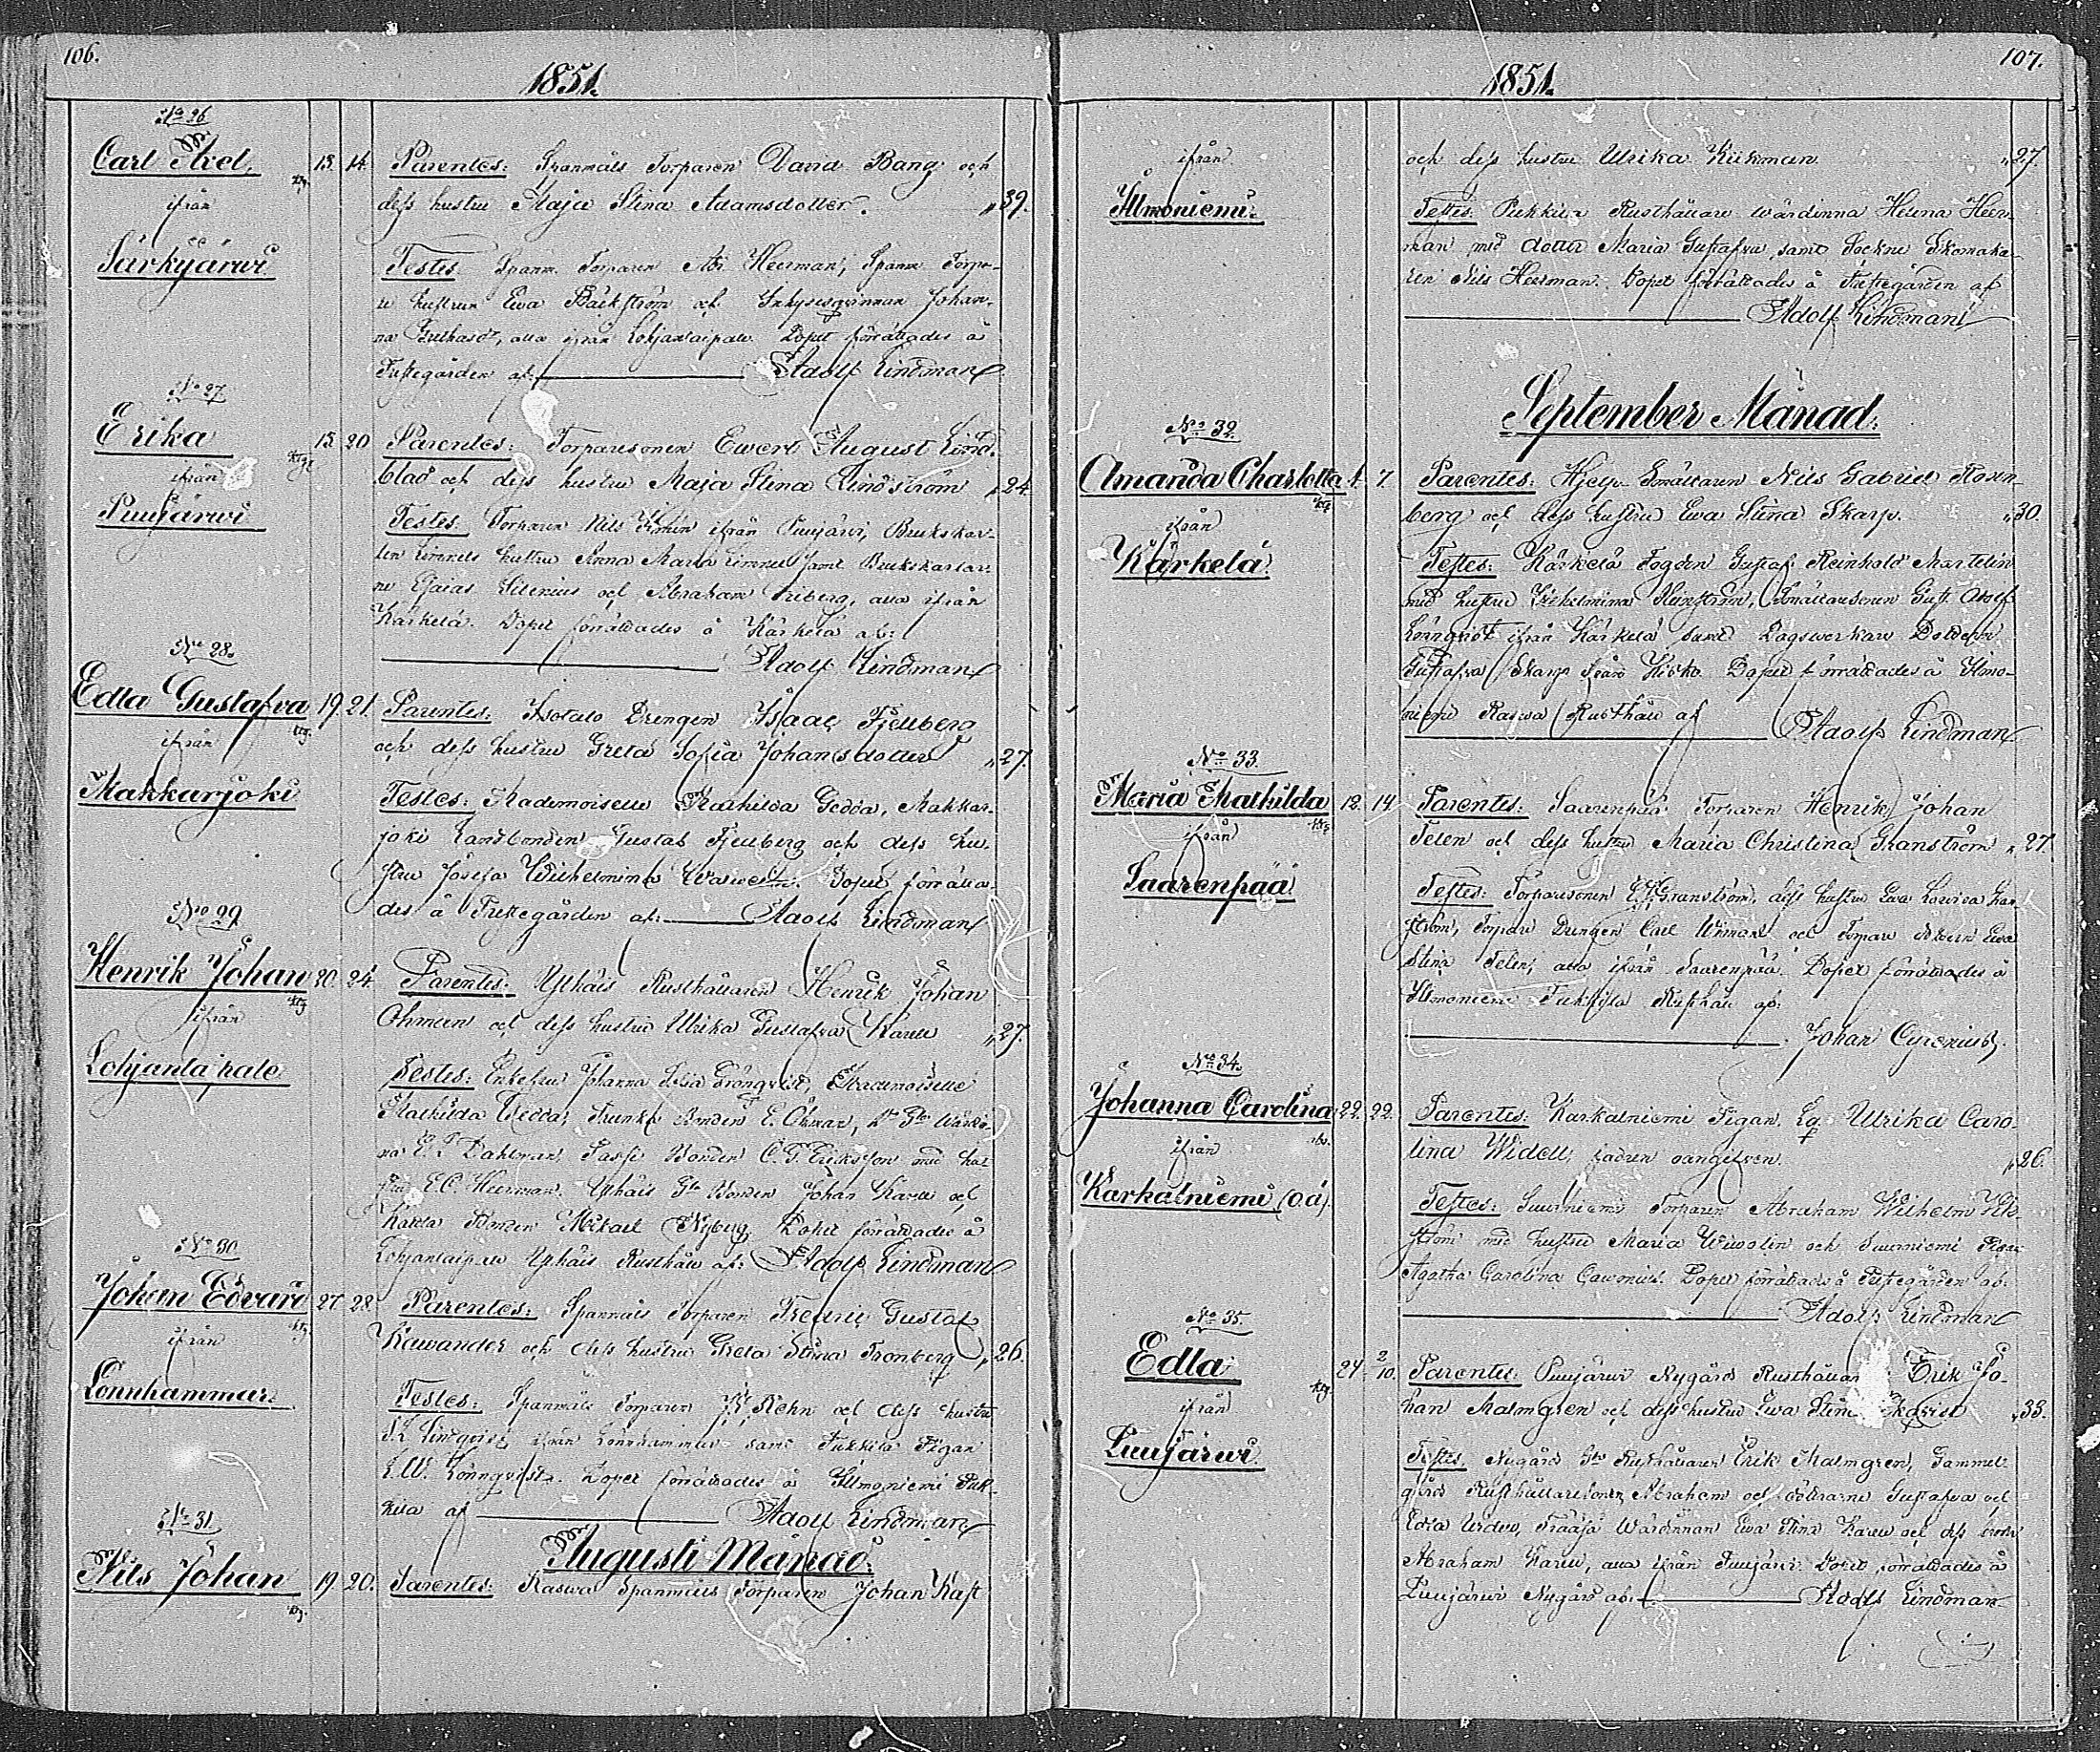 106.
1851.
No 26
Carl Axel,
ktg.
ifrån
Särkijärwi
13. 14. Parentes: Spanmäls Torparen David Bang och
dess hustru Maja Stina Adamsdotter. „ 39.
Testes: Spanm. Torparen Heerman, Spanm. Torpa-
re hustrun Ewa Bäckström och Inhysesqvinnan Johan-
na alla ifrån Lohjantaipale. Dopet förrättades å
Prestegården af Adolf Lindman
No 27.
Erika
ktg.
ifrån
Puujärwi
15. 20 Parentes: Torparesonen Ewert August Lind-
blad och dess hustru Maja Stina Lindström „ 24.
Testes: Torparen Nils ifrån Puujärwi, Brukskar-
len Limnels hustru Anna Maria Limnel samt Brukskarlar-
ne Esaias Silenius och Abraham Friberg, alla ifrån
Kärkelä. Dopet förrättades å Kärkelä af:
Adolf Lindman
No 28.
Edla Gustafva
ktg.
ifrån
Makkarjoki
19. 21. Parentes: Isotalo Drengen Isaac Fjellberg
och dess hustru Greta Sofia Johansdotter „ 27.
Testes: Mademoiselle Mathilda Gedda, Makkar-
joki Landbonden Gustaf Fjellberg och dess hu-
stru Josefa Wilhelmina Dopet förrätta-
des å Prestegården af: Adolf Lindman
No 29.
Henrik Johan
ktg.
ifrån
Lohjantaipale
20. 24. Parentes: Yphäis Rusthållaren Henrik Johan
Öhman och dess hustru Ulrika Gustafva Karell „ 27.
Testes: Enkefru Johanna Grönqvist, Mademoiselle
Mathilda Gedda, Bonden E. Öhman, Wärdin-
na E. Dahlman, Bonden C. G. Ericksson med hu-
stru E. C. Heerman. Yphäis Bonden Johan Karell och
Bonden Mikael Nyberg. Dopet förrättades å
Lohjantaipale Yphäis Rusthåll af: Adolf Lindman
No 30.
Johan Edvard
ktg.
ifrån
Lönnhammar.
27. 28. Parentes: Spanmäls Torparen Fredric Gustaf
Kawander och dess hustru Greta Stina Tronberg „ 26.
Testes: Spanmäls Torparen Rehn och dess hustru
Lindqvist, ifrån Lönnhammar samt Pukkila Pigan
E. W. Lönnqvist. Dopet förrättades å Ilmoniemi Puk-
kila af Adolf Lindman
Augusti Månad.
No 31.
Nils Johan
ktg.
19. 20. Parentes: Raswa Spanmäls Torparen Johan Käft
107.
1851.
ifrån
Ilmoniemi.
och dess hustru Ulrika Kiikman „ 27.
Testes: Pukkila Rusthållare wärdinna Helena Heer-
man med dotter Maria Gustafva, samt Sockne Skomaka-
ren Nils Heerman. Dopet förrättades å Prestegården af
Adolf Lindman
September Månad.
No 32.
Amanda Charlotta
ktg.
ifrån
Kärkelä.
1. 7. Parentes: Hjelp Smältaren Nils Gabriel Rosen-
berg och dess hustru Ewa Stina Skarp. „ 30.
Testes: Kärkelä Fogden Gustaf Reinhold Martelin
med hustru Wilhelmina Smältaresonen Gust. Adolf
Lönnqvist ifrån Kärkelä samt Dagswerkare Dottern
Gustafva Skarp från Kisko. Dopet förrättades å Ilmo-
niemi Raswa Rusthåll af Adolf Lindman
No 33.
Maria Mathilda
ktg.
ifrån
Saarenpää.
12. 14 Parentes: Saarenpää Torparen Henrik Johan
Telen och dess hustru Maria Christina Granström „ 27.
Testes: Torparesonen Granström, dess hustru Ewa Lovisa Gran-
ström, Torpare Drengen Carl och Torpare dottern Ewa
Stina Telen, alla ifrån Saarenpää. Dopet förrättades å
Ilmoniemi Pukkila Rusthåll af:
Johan Cyrenius
No 34.
Johanna Carolina
ifrån
Karkalniemi (o.ä).
22. 22. Parentes: Karkalniemi Pigan Lq Ulrika Caro-
lina Widell, fadren oangifven. „ 26.
Testes: Suurniemi Torparen Abraham Wilhelm Ek-
ström med hustru Maria och Suurniemi Pigan
Agatha Carolina Dopet förrättades å Prestegården af.
Adolf Lindman
No 35.
Edla
ktg.
ifrån
Puujärwi.
24. 2/10. Parentes: Puujärwi Nygård Rusthållar Erik Jo-
han Malmgren och dess hustru Ewa Stina Ekqvist „ 33.
Testes: Nygård Rusthållaren Erik Malmgren, Gammel-
gård Rusthållaresonen Abraham och döttrarne Gustafva och
Edla Wärdinnan Ewa Stina Karell och dess broder
Abraham Karell, alla ifrån Puujärwi. Dopet förrättades å
Puujärwi Nygård af: Adolf Lindman